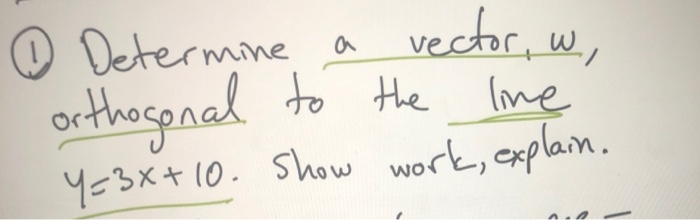 ① Determine a vector, w,
orthogonal to the line
y=3x+10. Show work, explain.